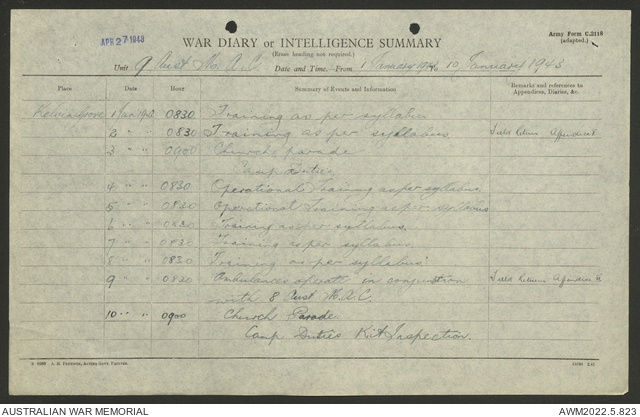 APR 27 1943
Army Form C.2118
(adapted.)
WAR DIARY or INTELLIGENCE SUMMARY
(Erase heading not required).
Unit 9 Aust M. A. C. Date and Time.—From 1 January 1943 to 10 January 1943
Place Date Hour Summary of Events and Information Remarks and references to
Appendices, Diaries, &c.
Kelvin Grove 1 Jan 1943 0830 Training as per syllabus
2 " " 0830 Training as per syllabus Field Returns Appendice
3 " " 0900 Church parade
Camp Duties
4 " " 0830 Operational Training as per syllabus.
5 " " 0830 Operational Training as per syllabus
6 " " 0830 Training as per syllabus.
7 " " 0830 Training as per syllabus.
8 " " 0830 Training as per syllabus.
9 " " 0830 Ambulances operate in conjunction Field Returns Appendice
with 8 Aust M.A.C.
10 " " 0900 Church Parade
Camp Duties Kit Inspection.
AUSTRALIAN WAR MEMORIAL
AWM2022.5.823